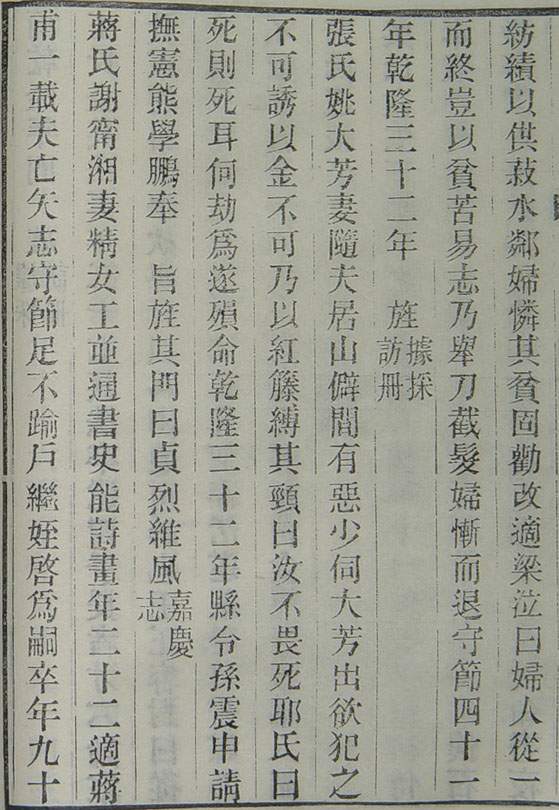 紡績以供菽水鄰婦憐其貧固勸改適梁泣曰婦人從一
而終豈以貧苦易志乃舉刀截髮婦慚而退守節四十一
年乾隆三十二年　旌據採訪冊
張氏姚大芳妻隨夫居山僻間有惡少伺大芳出欲犯之
不可誘以金不可乃以紅籐縛其頸曰汝不畏死耶氏曰
死則死耳何劫爲遂殞命乾隆三十二年縣令孫震申請
撫憲熊學鵬奉　旨旌其門曰貞烈維風嘉慶志
蔣氏謝甯湘妻精女工並通書史能詩畫年二十二適蔣
甫一載夫亡矢志守節足不踰戶繼姪啓爲嗣卒年九十